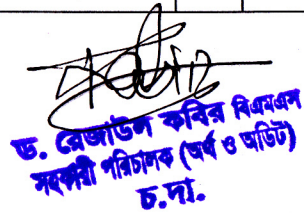 ড. রেজাউল কবির বিএমএস
সহকারী পরিচালক (অর্থ ও অডিট)
চ.দা.